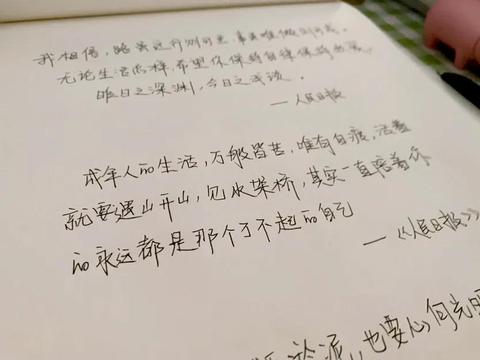 我相信，路虽远行则可至，事虽难做则可成。
无论生活怎样，希望你保持自律保持热爱。
昨日之深渊，今日之浅谈。
—人民日报
成年人的生活，万般皆苦，唯有自渡，活着
就要遇山开山，见水架桥，其实一直陪着你
的永远都是那个了不起的自己
—《人民日报》
也要心向光明